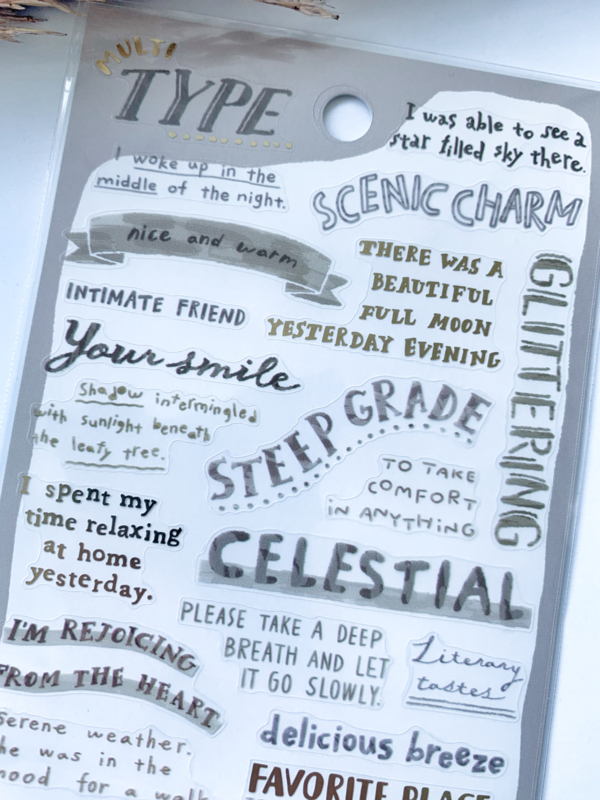 MULTI
TYPE
I was able to see a
star filled sky there.
I woke up in the
middle of the night.
SCENIC CHARM
nice and warm
THERE WAS A
BEAUTIFUL
FULL MOON
YESTERDAY EVENING
GLITTERING
INTIMATE FRIEND
Your smile
Shadow intermingled
with sunlight beneath
the leafy tree.
STEEP GRADE
TO TAKE
COMFORT
IN ANYTHING
I spent my
time relaxing
at home
yesterday.
CELESTIAL
I'M REJOICING
FROM THE HEART
PLEASE TAKE A DEEP
BREATH AND LET
IT GO SLOWLY.
Literary
tastes
Serene weather.
he was in the
mood for a walk
delicious breeze
FAVORITE PLACE